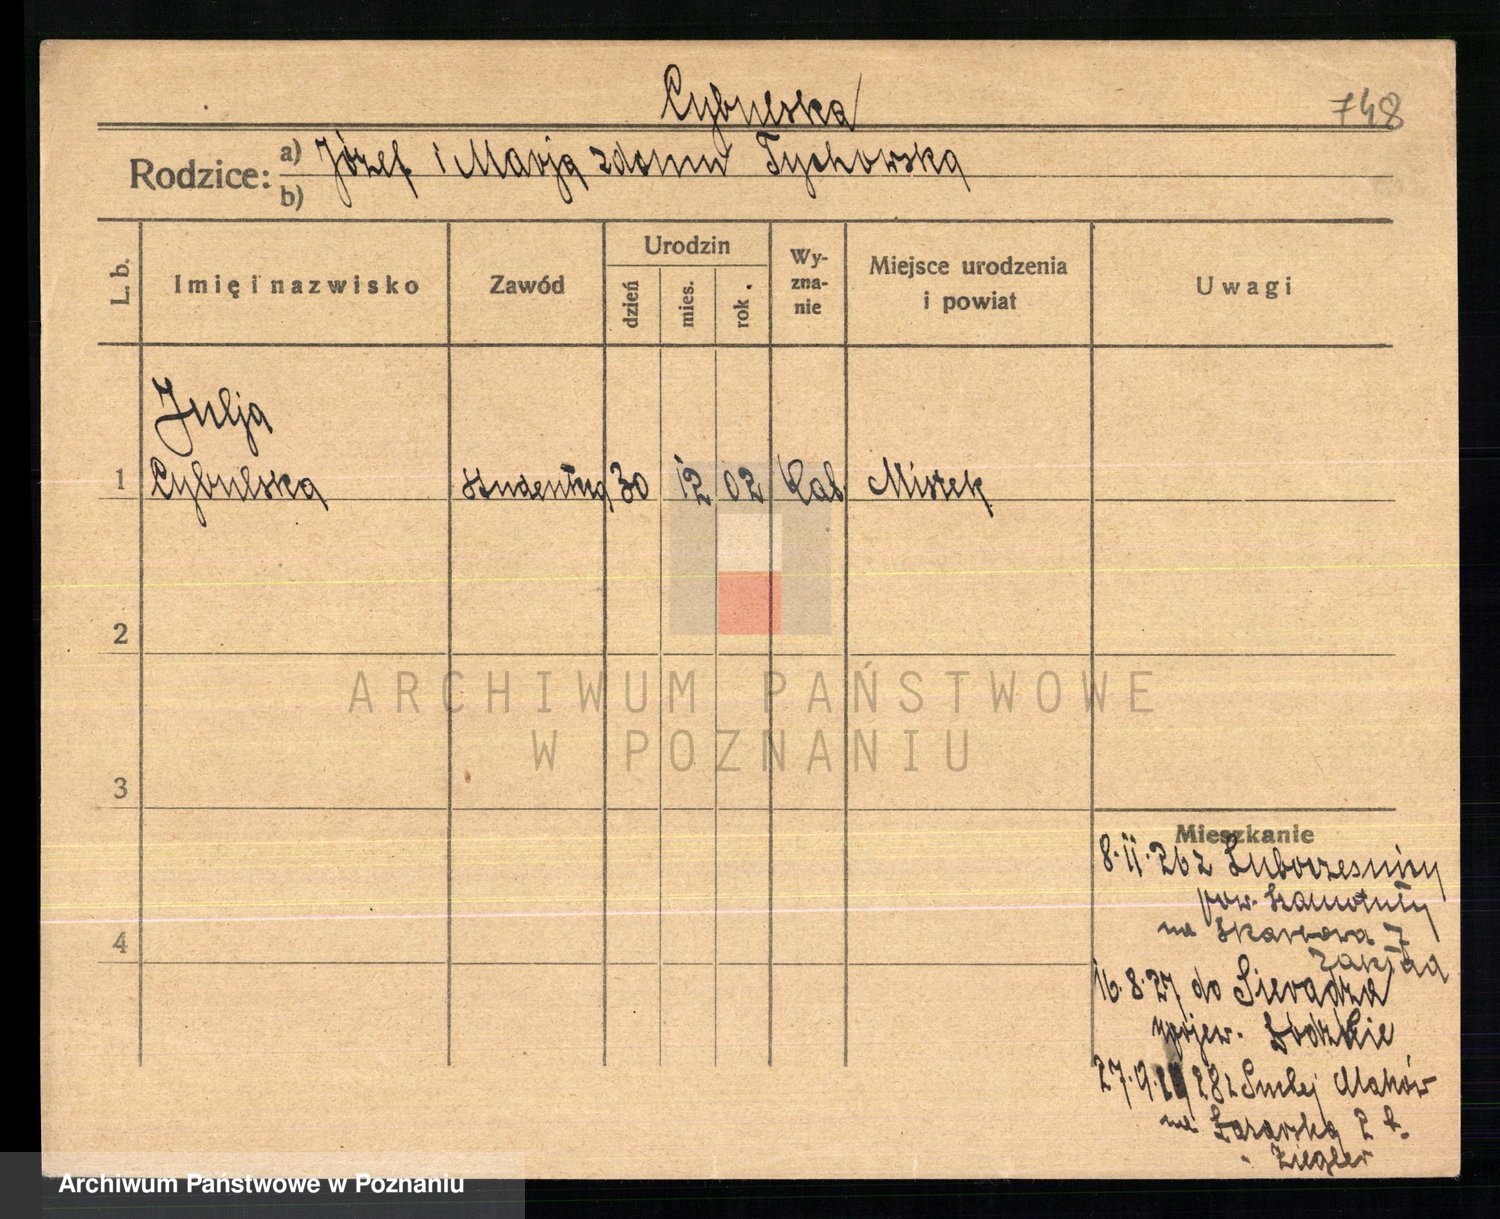 Cybulska
748
Rodzice: a) Józef i Marja z domu Tychowska
b)
L. b.
Imię i nazwisko
Zawód
Urodzin
dzień
mies.
rok.
Wy-
zna-
nie
Miejsce urodzenia
i powiat
Uwagi
Julja
1 Cybulska studentka 30 12 02 Kat
2
ARCHIWUM PAŃSTWOWE
W POZNANIU
3
Mieszkanie
8.11.26 z
pow. Szamotuły
na Skarbowa 7
Zakład
4
16.8.27 do Sieradza
wojew. Łódzkie
27.9. 28 z
na 2
Ziegler
Archiwum Państwowe w Poznaniu